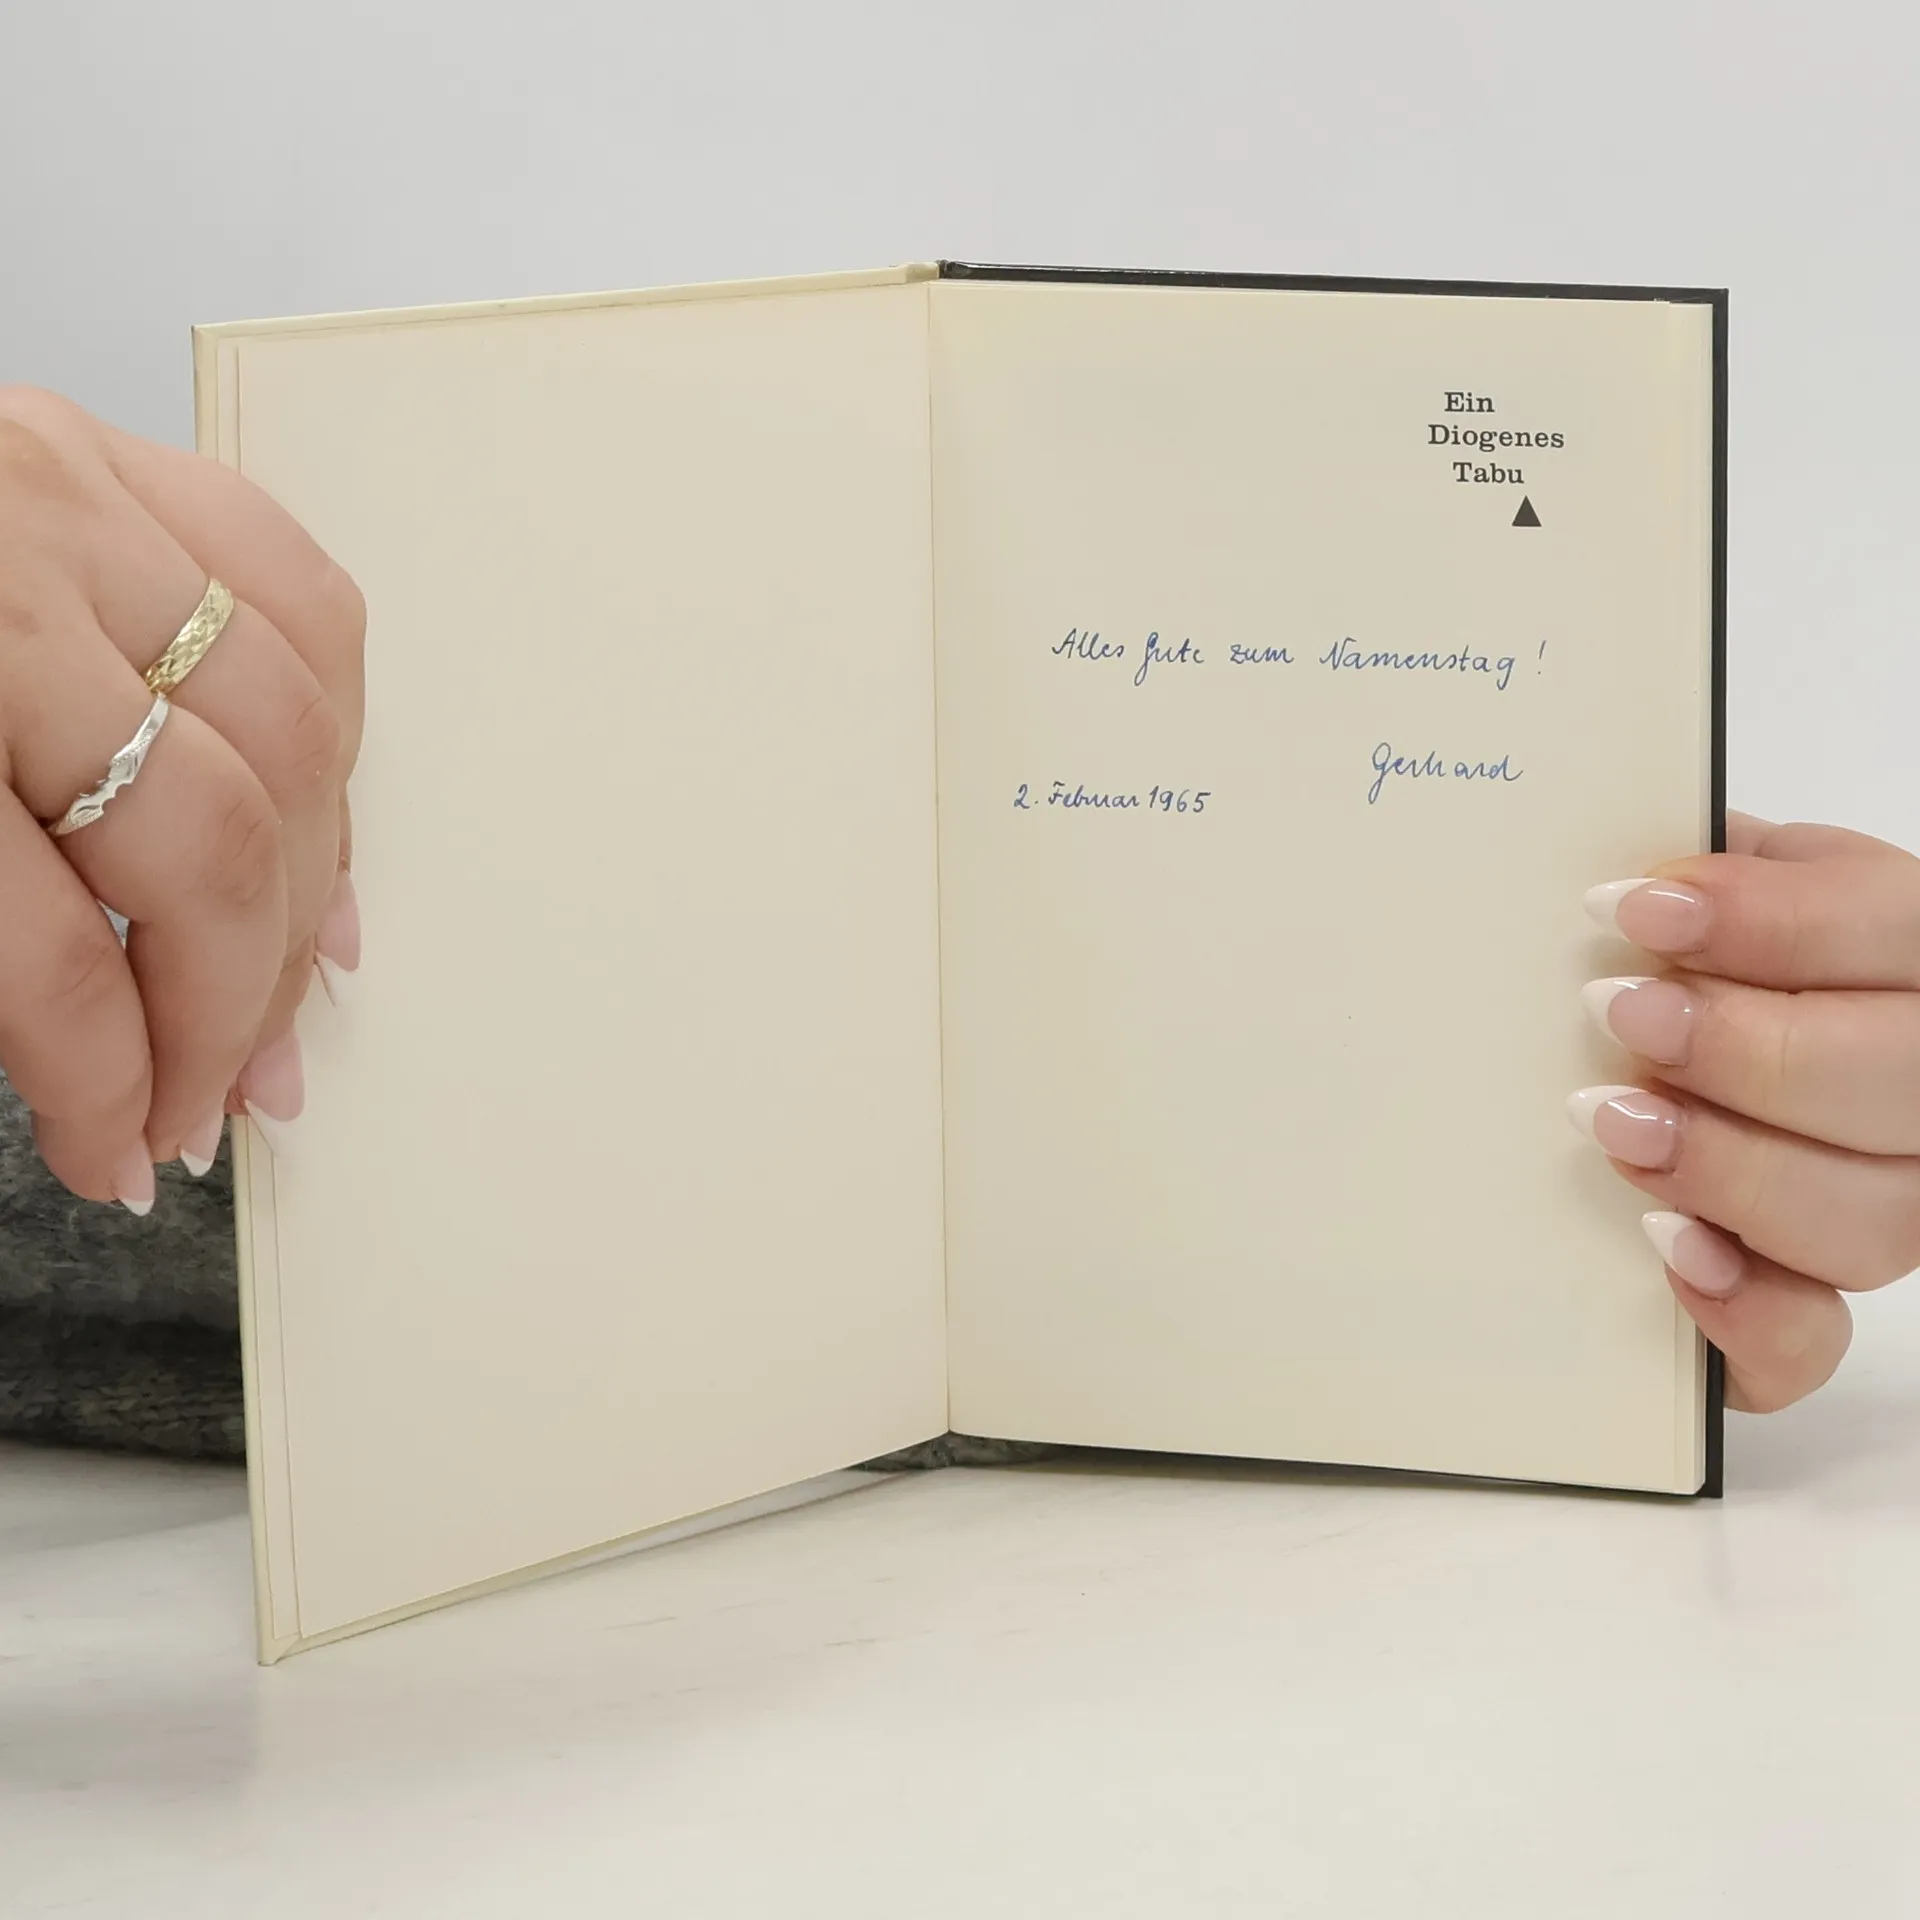 Ein
Diogenes
Tabu
Alles Gute zum Namenstag!
Gerhard
2. Februar 1965